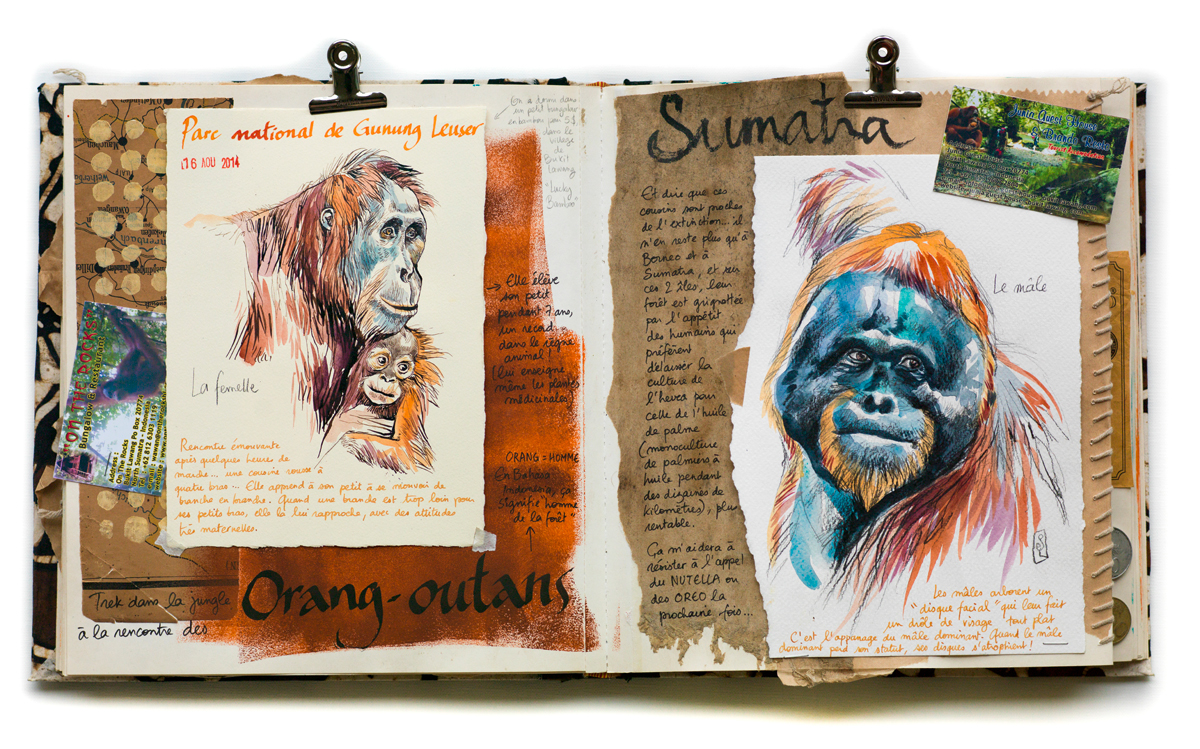 Parc national de Gunung Leuser
16 AOU 2014
La femelle
Rencontre émouvante
après quelques heures de
marche... une cousine rousse à
quatre bras... Elle apprend à son petit à se mouvoir de
branche en branche. Quand une branche est trop loin pour
ses petits bras, elle la lui rapproche, avec des attitudes
très maternelles.
ON THE ROCKS
Bungalow & Restaurant
Address :
On The Rocks
Bukit Lawang Po Box 20774
North Sumatra - Indonesia
On a dormi dans
un petit bungalow
en bambou pour 5$
dans le
village
de
Bukit
Lawang
"Lucky
Bamboo"
→ Elle élève
son petit
pendant 7 ans,
un record
dans le règne
animal !
(lui enseigne
même les plantes
médicinales)
ORANG = HOMME
En Bahasa
Indonesia, ça
signifie "homme
de la forêt"
Trek dans la jungle
à la rencontre des
Orang-outans
Sumatra
Junia Guest House
& Brando Resto
Et dire que ces
cousins sont proches
de l'extinction... il
n'en reste plus qu'à
Borneo et à
Sumatra, et sur
ces 2 îles, leur
forêt est grignottée
par l'appétit
des humains qui
préfèrent
délaisser la
culture de
l'hévéa pour
celle de l'huile
de palme
(monoculture
de palmiers à
huile pendant
des dizaines de
kilomètres), plus
rentable.
Ça m'aidera à
résister à l'appel
du NUTELLA ou
des OREO la
prochaine fois...
Le mâle
Les mâles arborent un
"disque facial" qui leur fait
un drôle de visage tout plat
C'est l'appanage du mâle dominant. Quand le mâle
dominant perd son statut, ses disques s'atrophient !